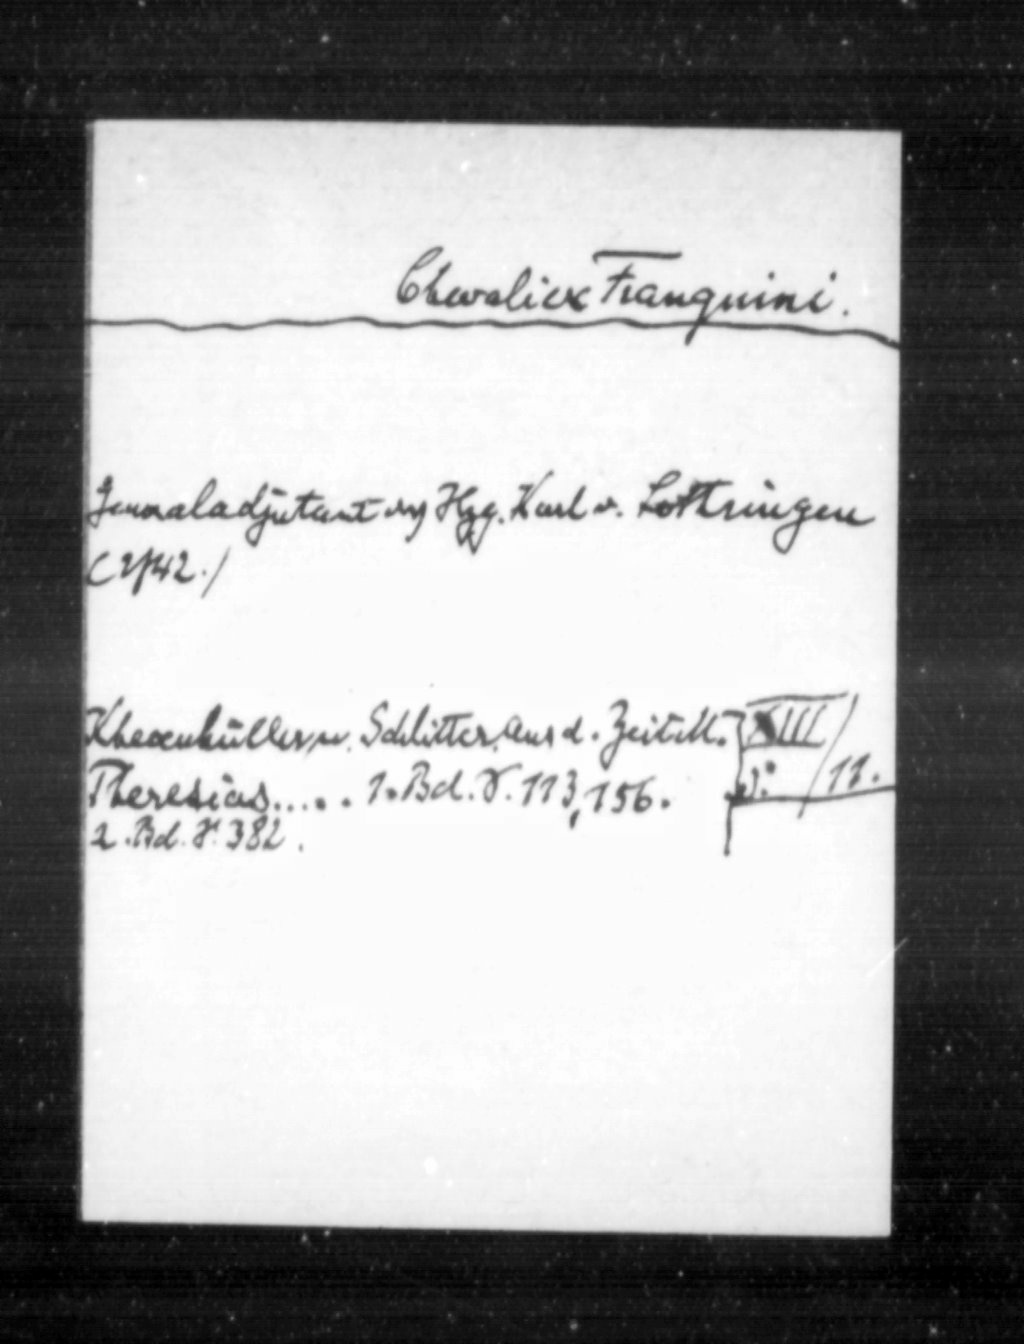 Chevalier Franquini.
Generaladjutant des Hzg. Karl v. Lothringen
(1742.)
Khevenhüller u. Schlitter, Aus d. Zeit M. XIII/
Theresias..... 1. Bd. S. 113, 156. 11.
2. Bd. S. 382.